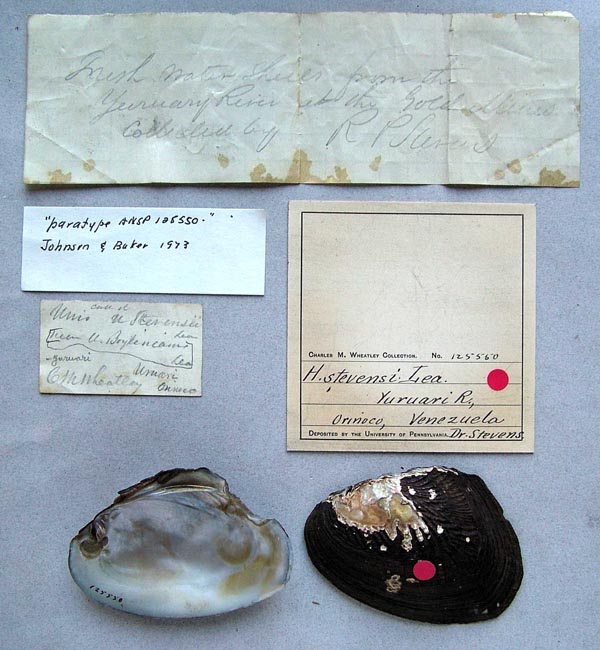 Fresh water shells from the
Yuruary River at the Gold Mines
Collected by R P Stevens
"paratype ANSP 125550."
Johnson & Baker 1973
Unio U Stevensii
Lea
Lea
C M Wheatley
CHARLES M. WHEATLEY COLLECTION. No. 125550
H. stevensi Lea.
Yuruari R.,
Orinoco, Venezuela
DEPOSITED BY THE UNIVERSITY OF PENNSYLVANIA. Dr. Stevens.
125550